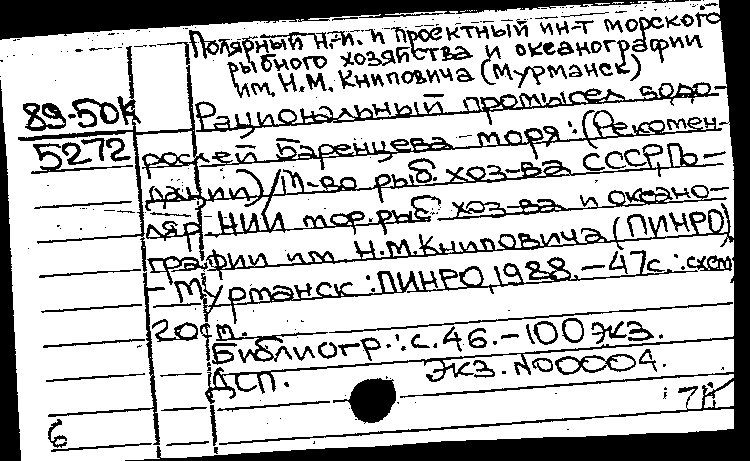 Полярный н.-и. и проектный ин-т морского
рыбного хозяйства и океанографии
им. Н.М. Книповича (Мурманск)
89-50К
5272
Рациональный промысел водо-
рослей Баренцева моря : (Рекомен-
дации) / М-во рыб. хоз-ва СССР, По-
ляр. НИИ мор. рыб. хоз-ва и океано-
графии им. Н.М. Книповича (ПИНРО).
- Мурманск : ПИНРО, 1988. - 47 с. : схем;
20 см.
Библиогр.: с. 46. - 100 экз.
ДСП. Экз. N00004.
6